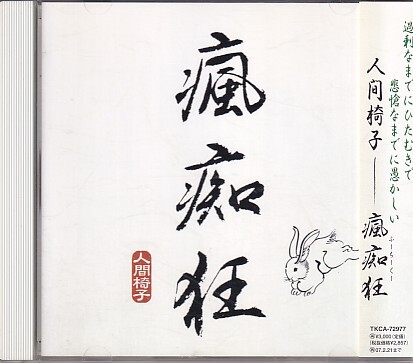 過剰なまでにひたむきで
悲愴なまでに愚かしい
人間椅子——瘋痴狂
ふーちくー
瘋痴狂
人間椅子
TKCA-72977
¥3,000(定価)
(税抜価格¥2,857)
07.2.21まで